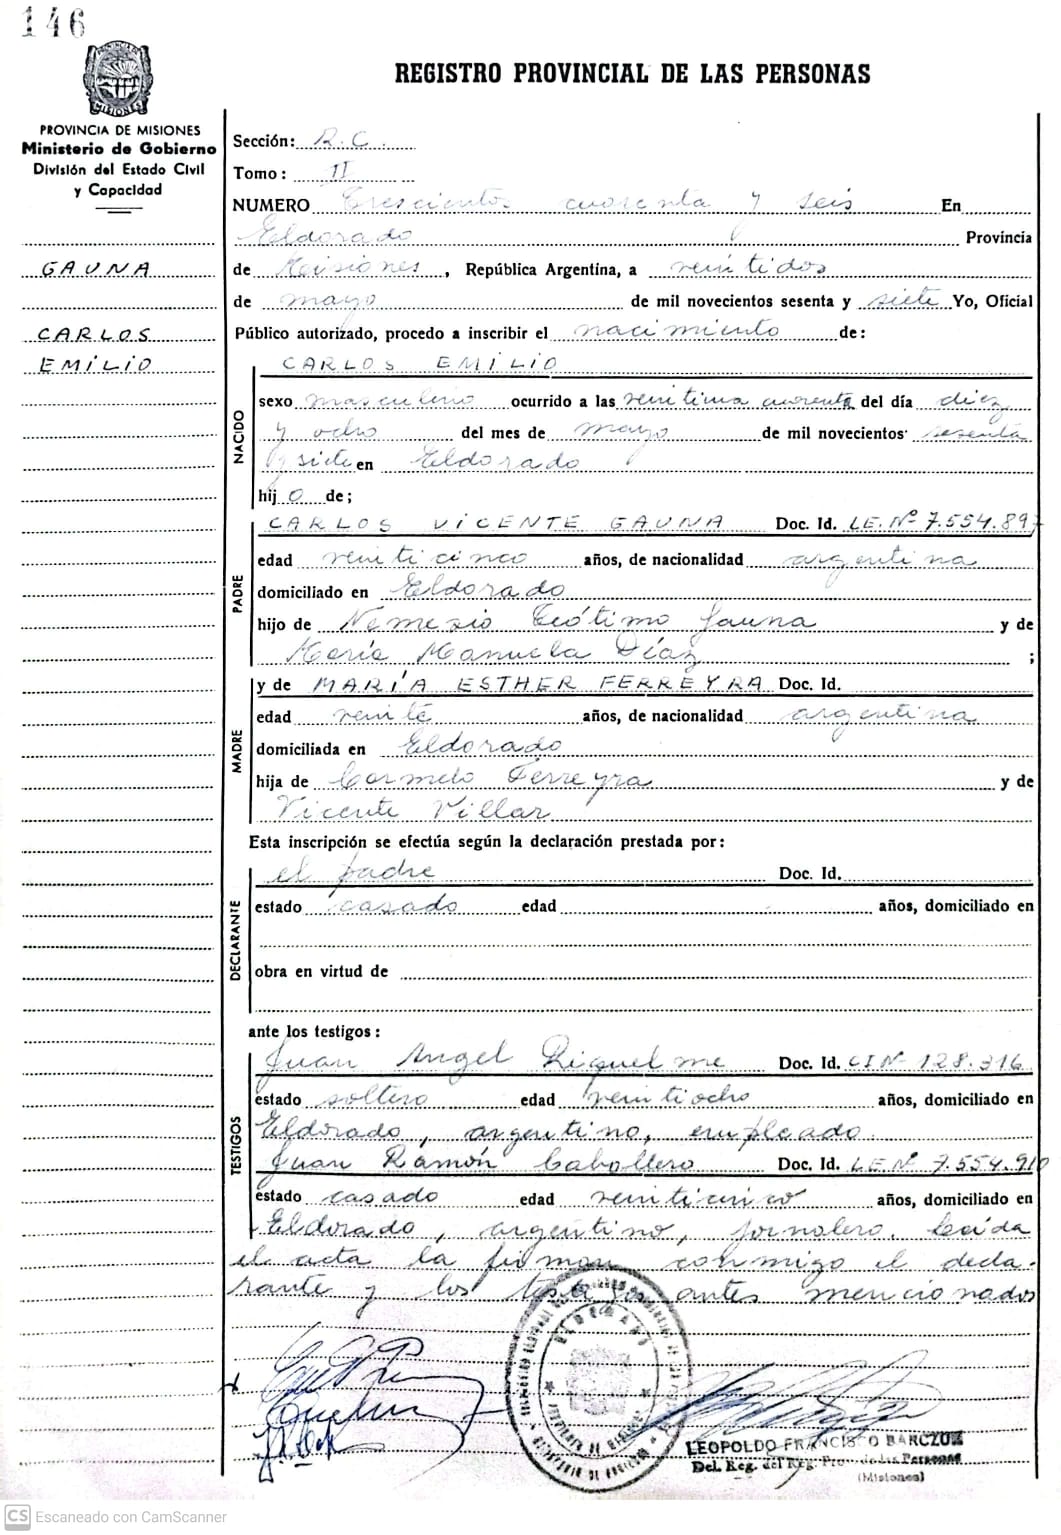 146
PROVINCIA DE MISIONES
Ministerio de Gobierno
División del Estado Civil
y Capacidad
GAUNA
CARLOS
EMILIO
REGISTRO PROVINCIAL DE LAS PERSONAS
Sección: R.C.
Tomo: II
NUMERO Trescientos cuarenta y seis En
Eldorado Provincia
de Misiones, República Argentina, a veintidos
de mayo de mil novecientos sesenta y siete Yo, Oficial
Público autorizado, procedo a inscribir el nacimiento de:
CARLOS EMILIO
NACIDO
sexo masculino ocurrido a las veintiuna cuarenta del día diez
y ocho del mes de mayo de mil novecientos sesenta
y siete en Eldorado
hijo de;
CARLOS VICENTE GAUNA Doc. Id. LE. Nº 7.554.897
PADRE
edad veinticinco años, de nacionalidad argentina
domiciliado en Eldorado
hijo de Nemesio Teótimo Gauna y de
María Manuela Díaz ;
y de MARÍA ESTHER FERREYRA Doc. Id.
MADRE
edad veinte años, de nacionalidad argentina
domiciliada en Eldorado
hija de Carmelo Ferreyra y de
Vicente Villar
Esta inscripción se efectúa según la declaración prestada por:
el padre Doc. Id.
DECLARANTE
estado casado edad años, domiciliado en
obra en virtud de
ante los testigos:
Juan Angel Riquelme Doc. Id. CI Nº 128.316
TESTIGOS
estado soltero edad veintiocho años, domiciliado en
Eldorado, argentino, empleado
Juan Ramón Caballero Doc. Id. LE Nº 7.554.910
estado casado edad veinticinco años, domiciliado en
Eldorado, argentino, jornalero. Leída
el acta la firman conmigo el decla-
rante y los testigos antes mencionados
ELDORADO
LEOPOLDO FRANCISCO BARCZUK
Del. Reg. del Reg. Prov. de las Personas
(Misiones)
CS Escaneado con CamScanner